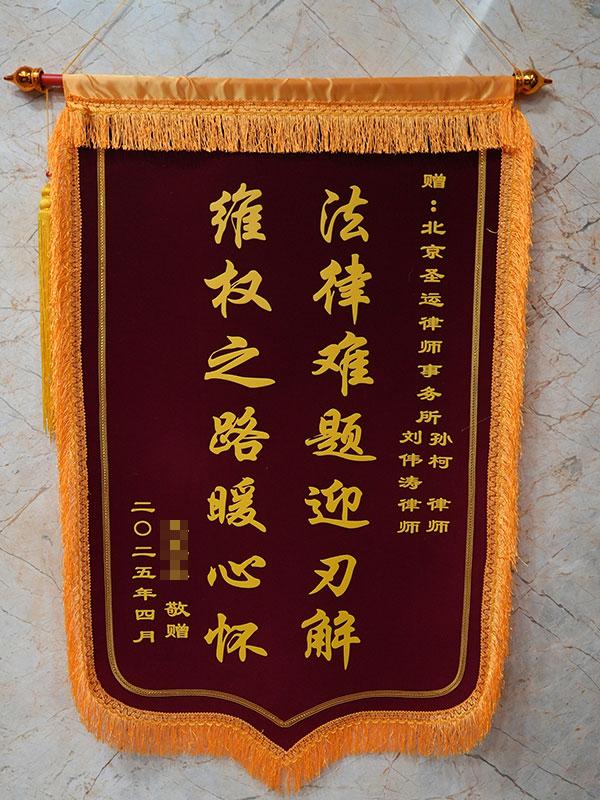 赠：北京圣运律师事务所孙柯 律师
刘伟涛律师
法律难题迎刃解
维权之路暖心怀
敬赠
二〇二五年四月